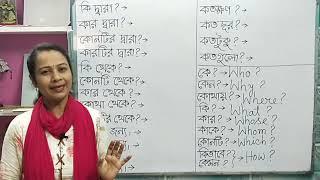 কি দ্বারা? →
কার দ্বারা? →
কোনটির দ্বারা? →
কারটির দ্বারা? →
কি থেকে? →
কোনটি থেকে? →
কার থেকে? →
কোথা থেকে? →
জন্য? →
কতক্ষণ? →
কত দূর? →
কতটুকু? →
কতগুলো? →
কে? → Who?
কেন? → Why?
কোথায়? → Where?
কি? → What?
কার? → Whose?
কাকে? → Whom?
কোনটি? → Which?
কিভাবে?
কেমন? } → How?